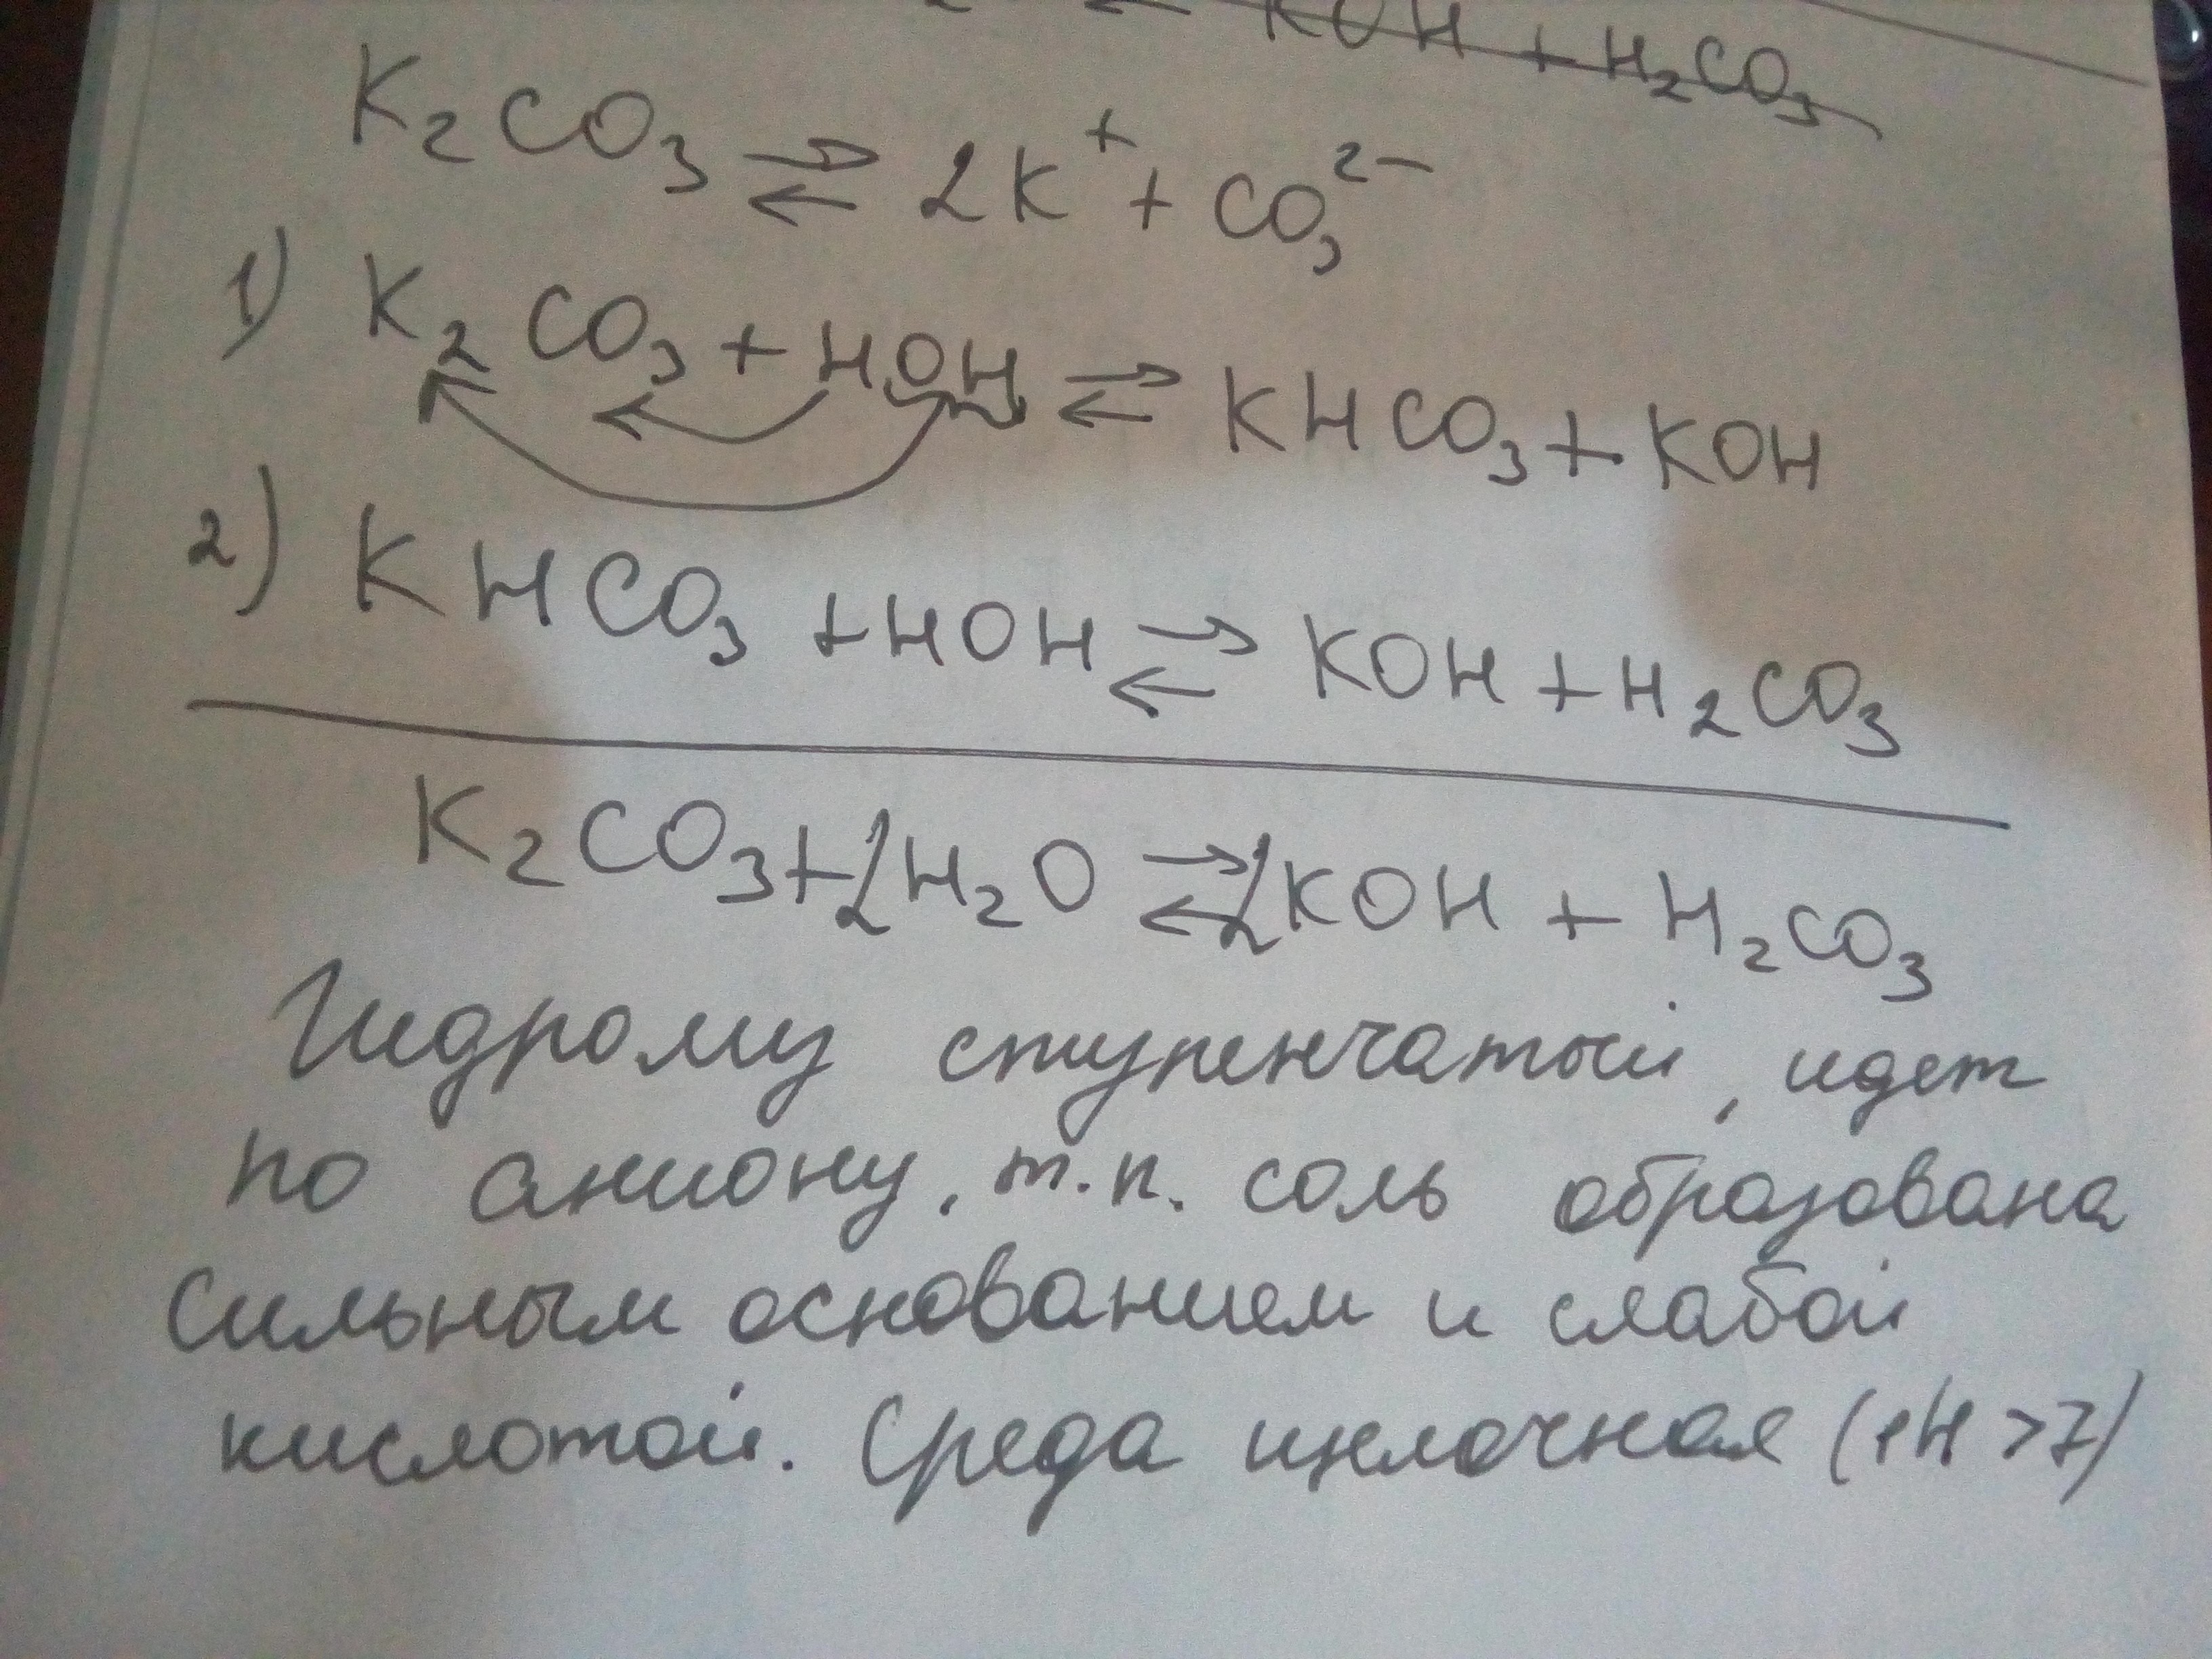 ⇌ KOH + H₂CO₃
K₂CO₃ ⇌ 2K⁺ + CO₃²⁻
1) K₂CO₃ + HOH ⇌ KHCO₃ + KOH
2) KHCO₃ + HOH ⇌ KOH + H₂CO₃
K₂CO₃ + 2H₂O ⇌ 2KOH + H₂CO₃
Гидролиз ступенчатый, идет
по аниону, т.к. соль образована
сильным основанием и слабой
кислотой. Среда щелочная (pH >7)